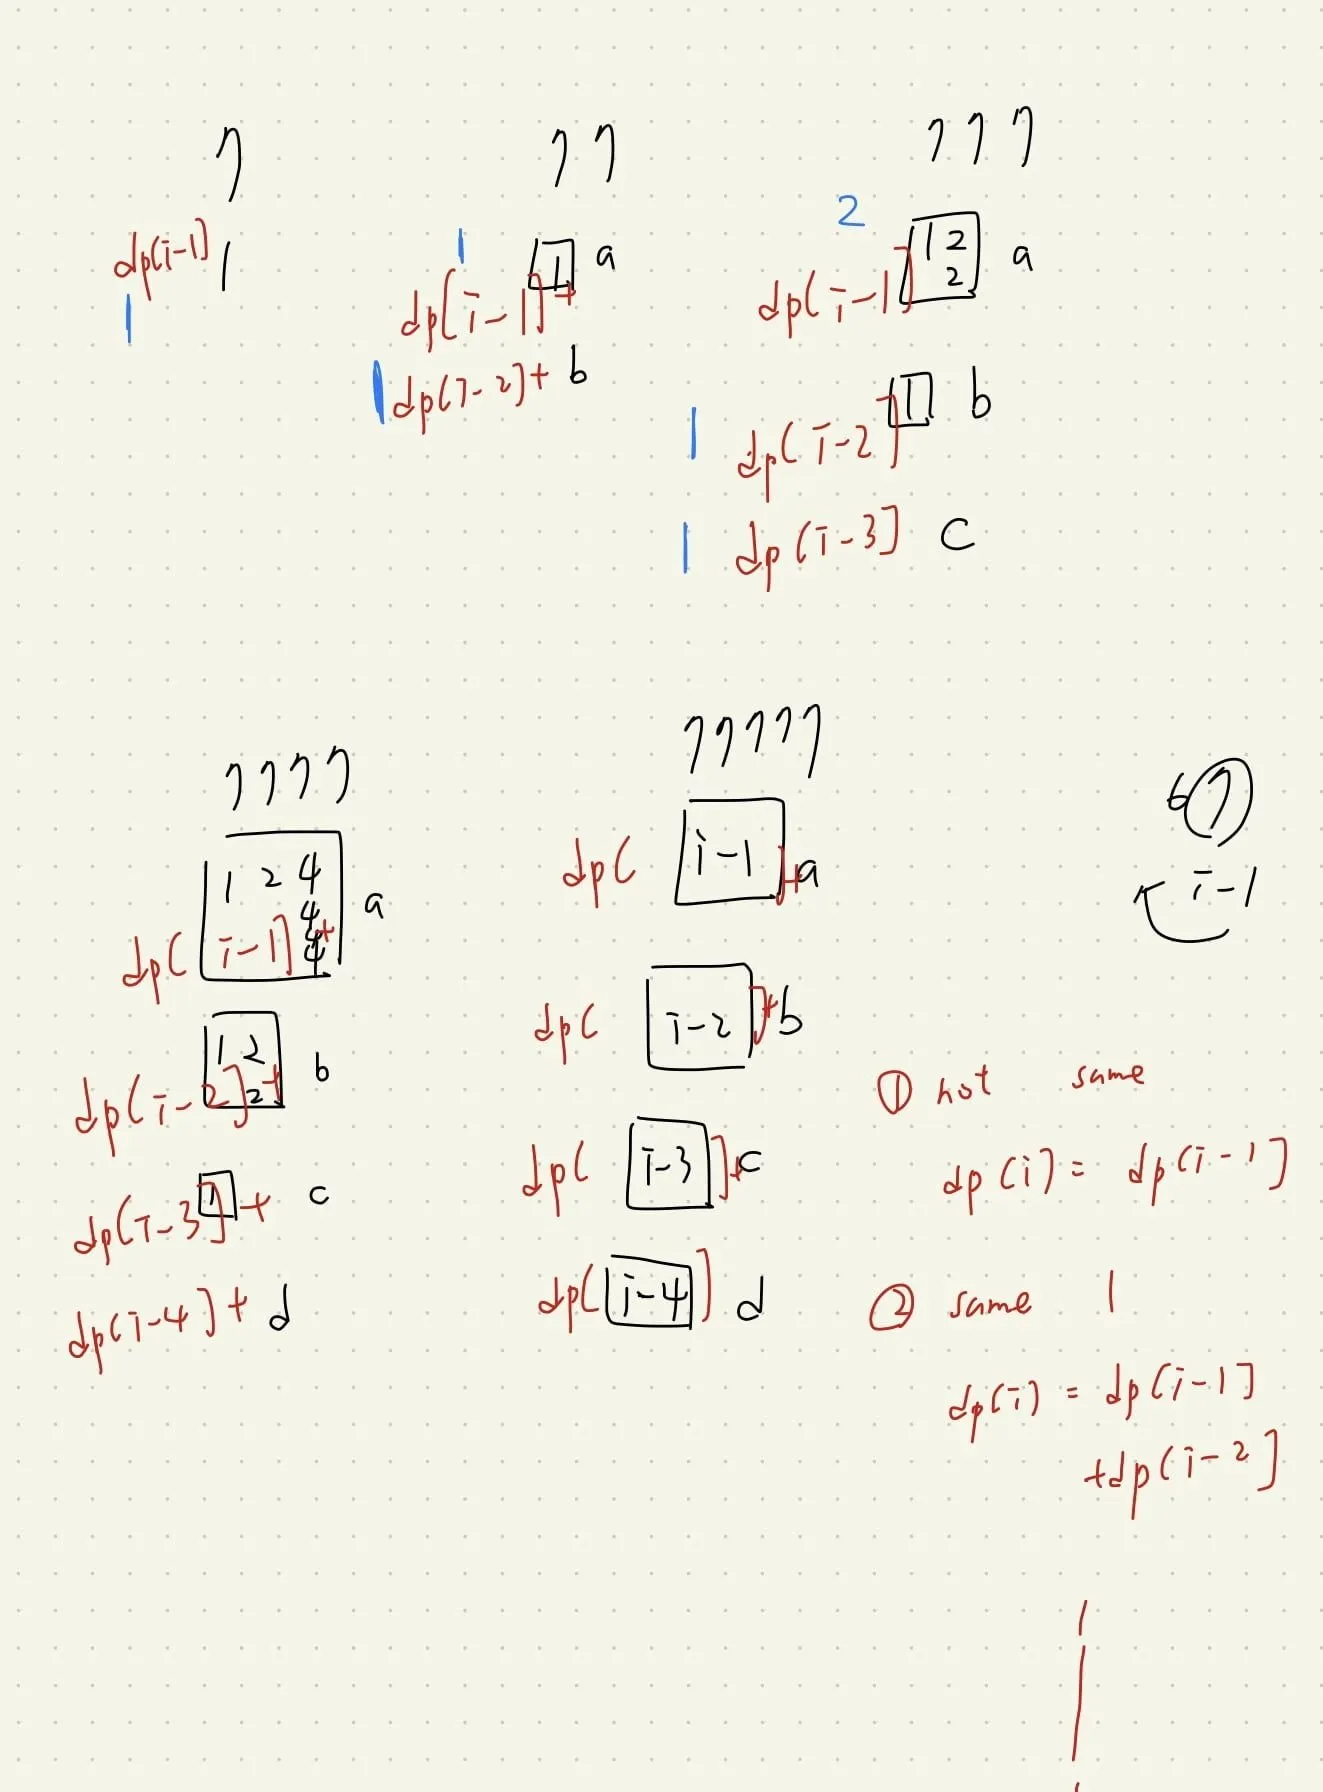 7
dp[i-1] 1
1
7 7
1
1 a
dp[i-1]+
1 dp(7-2]+ b
7 7 7
2
1 2 a
2
dp(i-1]
1 b
1 dp(i-2]
1 dp(i-3] c
7 7 7 7
1 2 4 a
4
dp( i-1] 4+
1 2 b
dp(i-2]+ 2
dp(i-3]+ 1 c
dp(i-4]+ d
7 7 7 7 7
dp( i-1 ]+a
dp( i-2 ]+b
dp( i-3 ]+c
dp( i-4 ] d
6 7
i-1
① not same
dp(i)= dp(i-1]
② same 1
dp(i) = dp(i-1]
+dp(i-2]